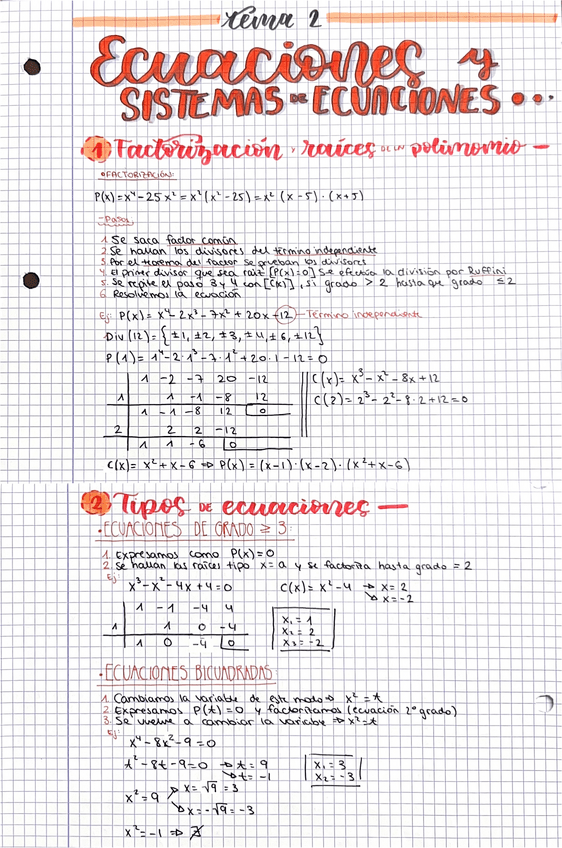 tema 2
Ecuaciones y
SISTEMAS DE ECUACIONES...
1 Factorización y raíces de un polinomio —
• FACTORIZACIÓN:
P(x) = x⁴ - 25x² = x² (x² - 25) = x² (x - 5) · (x + 5)
- Pasos
1. Se saca factor común
2. Se hallan los divisores del término independiente
3. Por el teorema del factor se prueban los divisores
4. El primer divisor que sea raíz [P(x)=0] se efectúa la división por Ruffini
5. Se repite el paso 3 y 4 con [C(x)], si grado > 2 hasta que grado ≤ 2
6. Resolvemos la ecuación
Ej: P(x) = x⁴ - 2x³ - 7x² + 20x - 12 — Término independiente
Div (12) = {±1, ±2, ±3, ±4, ±6, ±12}
P(1) = 1⁴ - 2·1³ - 7·1² + 20·1 - 12 = 0
1 -2 -7 20 -12
1 1 -1 -8 12
1 -1 -8 12 0
2 2 2 -12
1 1 -6 0
C(x) = x³ - x² - 8x + 12
C(2) = 2³ - 2² - 8·2 + 12 = 0
C(x) = x² + x - 6 ⇒ P(x) = (x-1) · (x-2) · (x² + x - 6)
2 Tipos de ecuaciones —
• ECUACIONES DE GRADO ≥ 3:
1. Expresamos como P(x) = 0
2. Se hallan las raíces tipo x = a y se factoriza hasta grado = 2
Ej:
x³ - x² - 4x + 4 = 0
C(x) = x² - 4 → x = 2
↘ x = -2
1 -1 -4 4
1 1 0 -4
1 0 -4 0
x₁ = 1
x₂ = 2
x₃ = -2
• ECUACIONES BICUADRADAS:
1. Cambiamos la variable de este modo ⇒ x² = t
2. Expresamos P(t) = 0 y factorizamos (ecuación 2º grado)
3. Se vuelve a cambiar la variable ⇒ x² = t
Ej:
x⁴ - 8x² - 9 = 0
t² - 8t - 9 = 0 → t = 9
↘ t = -1
x₁ = 3
x₂ = -3
x² = 9 ↗ x = √9 = 3
↘ x = -√9 = -3
x² = -1 ⇒ ∄